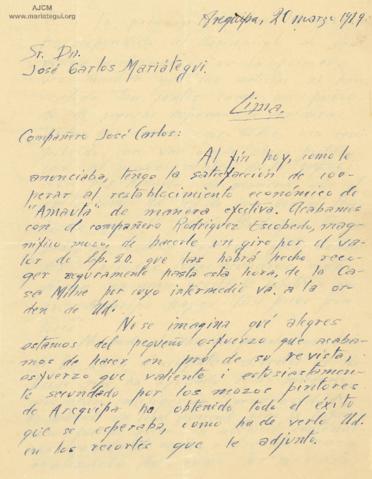 AJCM
www.mariategui.org
Arequipa, 20 marzo 1929.
Sr. Dn.
José Carlos Mariátegui.
Lima.
Compañero José Carlos:
Al fin hoy, como le
anunciaba, tengo la satisfacción de coo-
perar al restablecimiento económico de
"Amauta" de manera efectiva. Acabamos
con el compañero Rodriguez Escobedo, mag-
nífico mozo, de hacerle un giro por el va-
lor de Lp. 20. que las habrá hecho reco-
ger seguramente hasta esta hora, de la Ca-
sa Milne por cuyo intermedio vá. a la or-
den de Ud.
No se imagina qué alegres
estamos del pequeño esfuerzo que acaba-
mos de hacer en pró de su revista,
esfuerzo que valiente i entusiastamen-
te secundado por los mozos pintores
de Arequipa ha obtenido todo el éxito
que se esperaba, como ha de verlo Ud.
en los recortes que le adjunto.